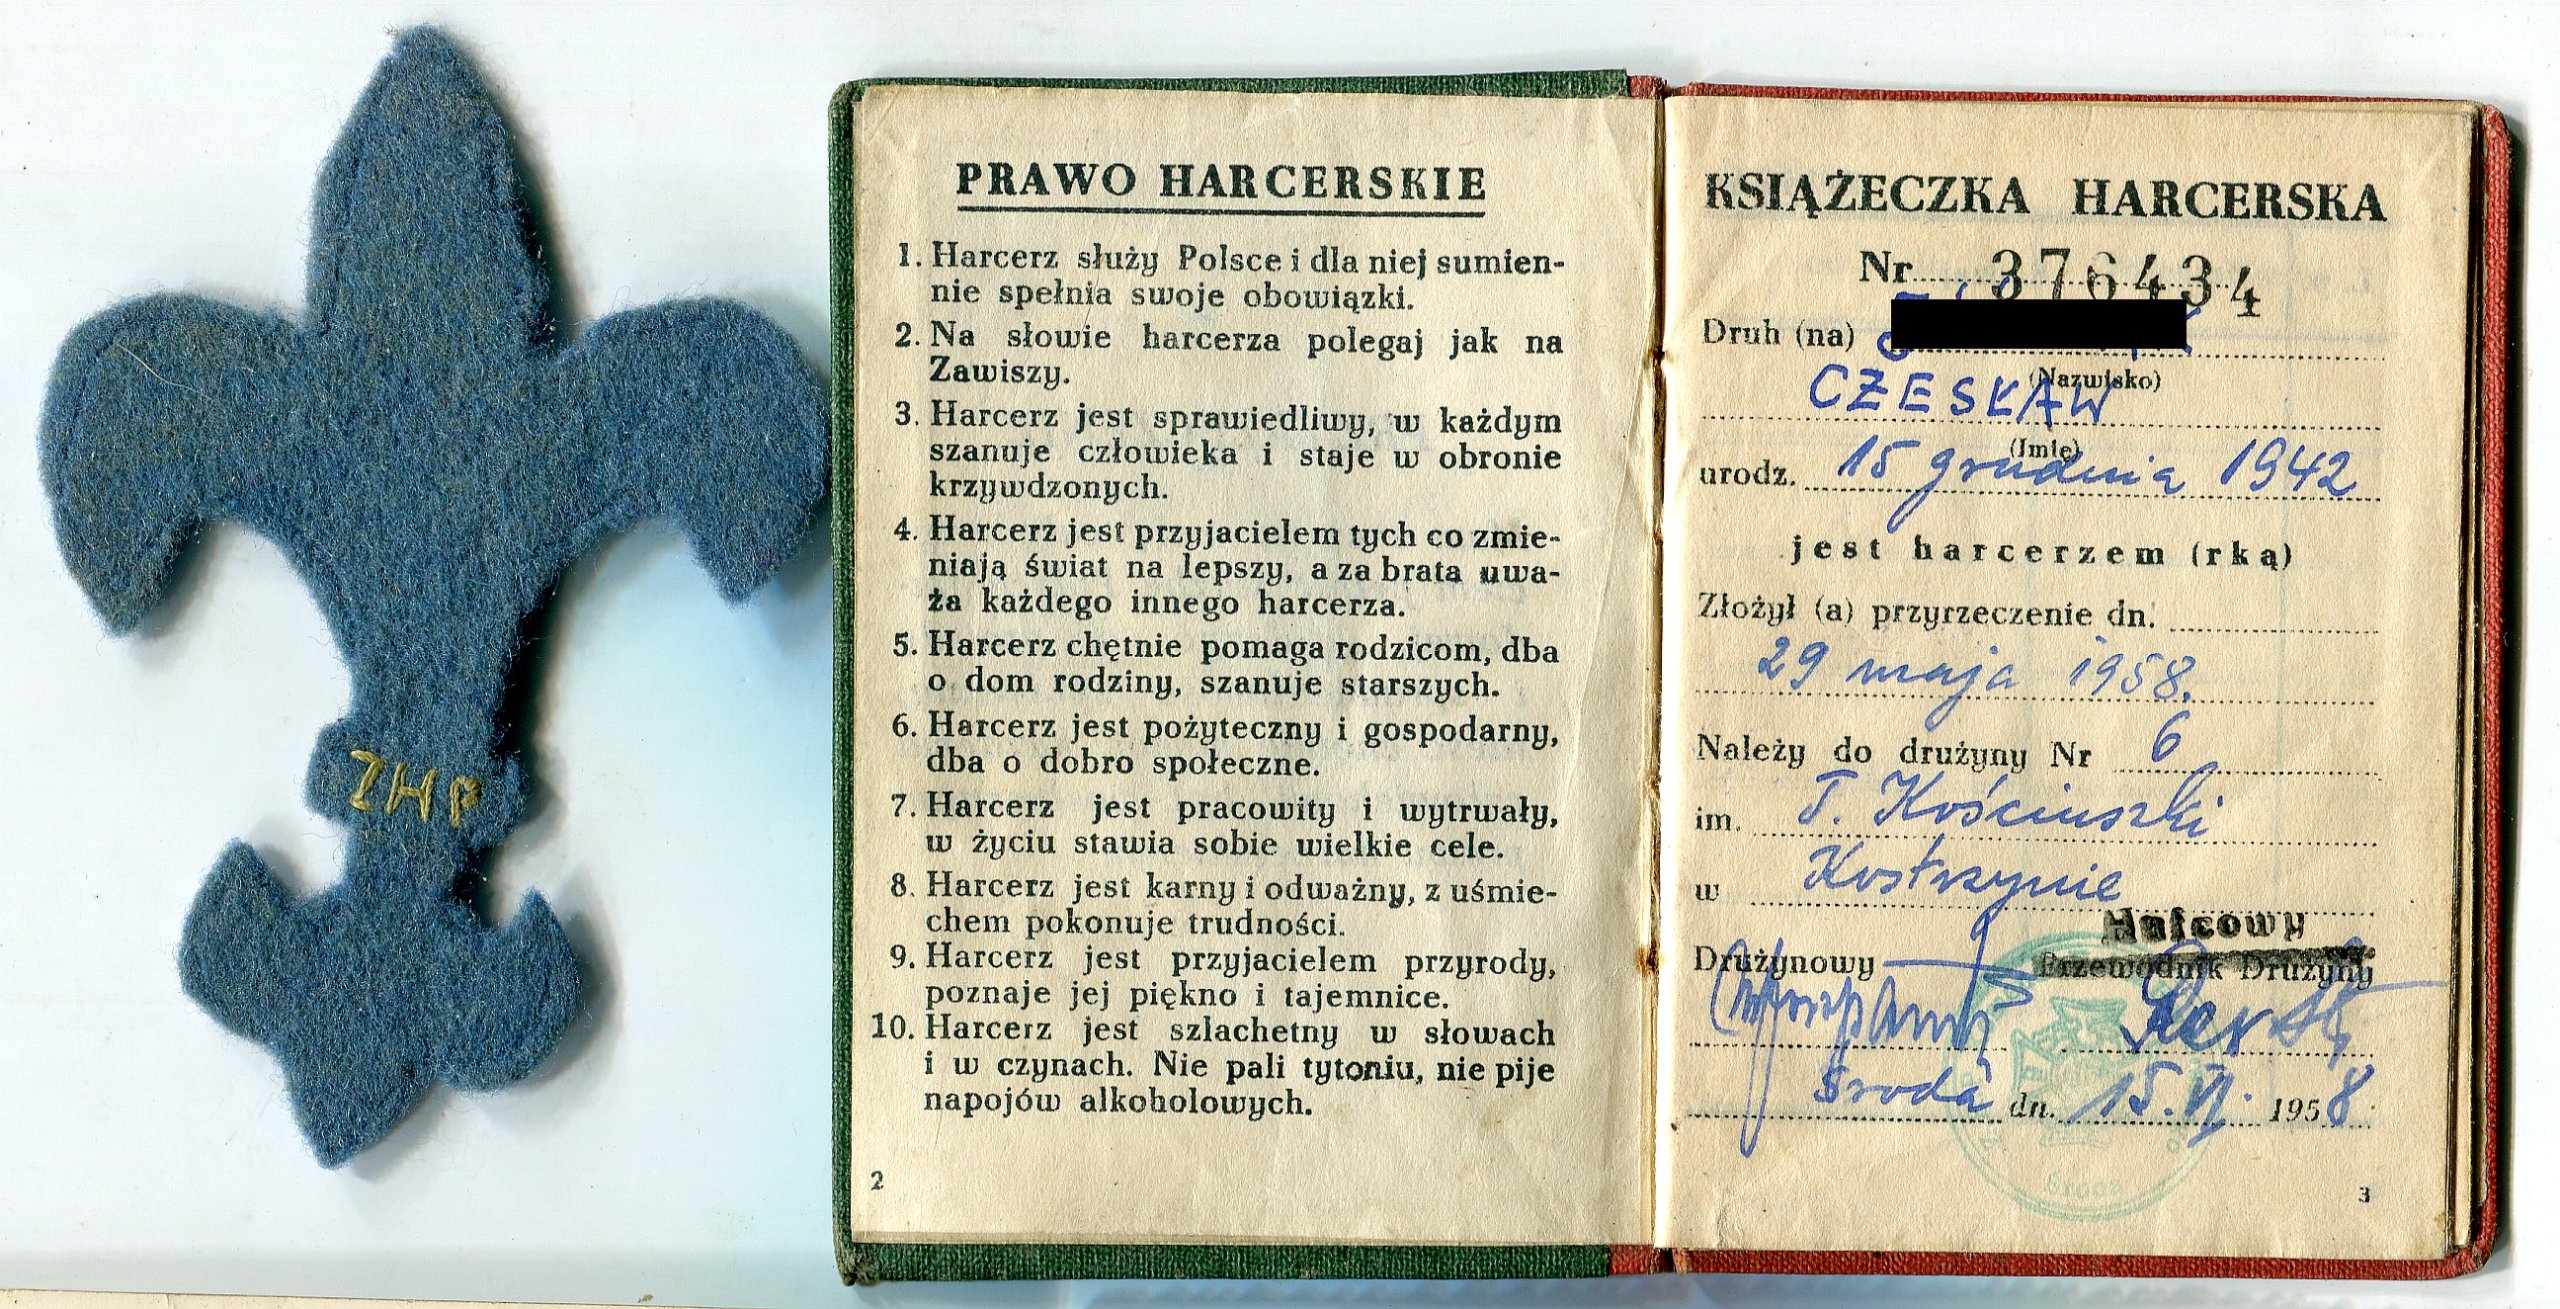 ZHP
PRAWO HARCERSKIE
1. Harcerz służy Polsce i dla niej sumien-
nie spełnia swoje obowiązki.
2. Na słowie harcerza polegaj jak na
Zawiszy.
3. Harcerz jest sprawiedliwy, w każdym
szanuje człowieka i staje w obronie
krzywdzonych.
4. Harcerz jest przyjacielem tych co zmie-
niają świat na lepszy, a za brata uwa-
ża każdego innego harcerza.
5. Harcerz chętnie pomaga rodzicom, dba
o dom rodziny, szanuje starszych.
6. Harcerz jest pożyteczny i gospodarny,
dba o dobro społeczne.
7. Harcerz jest pracowity i wytrwały,
w życiu stawia sobie wielkie cele.
8. Harcerz jest karny i odważny, z uśmie-
chem pokonuje trudności.
9. Harcerz jest przyjacielem przyrody,
poznaje jej piękno i tajemnice.
10. Harcerz jest szlachetny w słowach
i w czynach. Nie pali tytoniu, nie pije
napojów alkoholowych.
2
KSIĄŻECZKA HARCERSKA
Nr 376434
Druh (na)
(Nazwisko)
CZESŁAW
(Imię)
urodz. 15 grudnia 1942
jest harcerzem (rką)
Złożył (a) przyrzeczenie dn.
29 maja 1958.
Należy do drużyny Nr 6
im. T. Kościuszki
w Kostrzynie
Hufcowy
Drużynowy Przewodnik Drużyny
Środa dn. 15.VI. 1958
Środa
3